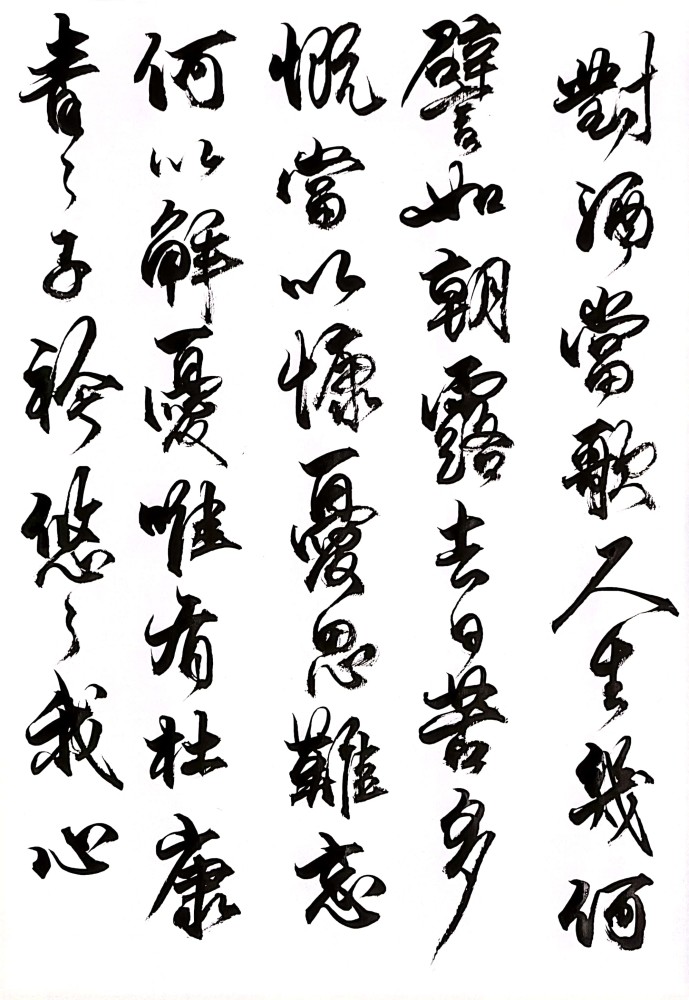 對酒當歌人生幾何
譬如朝露去日苦多
慨當以慷憂思難忘
何以解憂唯有杜康
青々子衿悠々我心